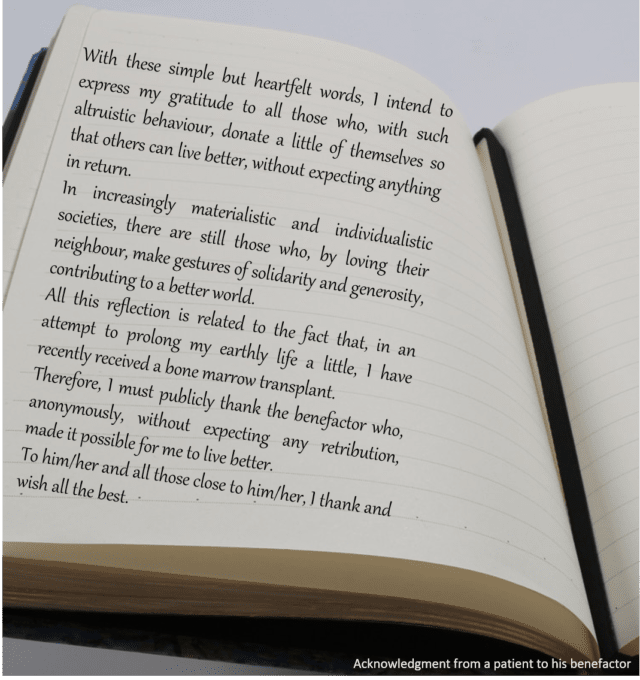 With these simple but heartfelt words, I intend to
express my gratitude to all those who, with such
altruistic behaviour, donate a little of themselves so
that others can live better, without expecting anything
in return.
In increasingly materialistic and individualistic
societies, there are still those who, by loving their
neighbour, make gestures of solidarity and generosity,
contributing to a better world.
All this reflection is related to the fact that, in an
attempt to prolong my earthly life a little, I have
recently received a bone marrow transplant.
Therefore, I must publicly thank the benefactor who,
anonymously, without expecting any retribution,
made it possible for me to live better.
To him/her and all those close to him/her, I thank and
wish all the best.
Acknowledgment from a patient to his benefactor